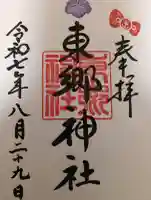 奉拝
東郷神社
令和七年八月二十九日